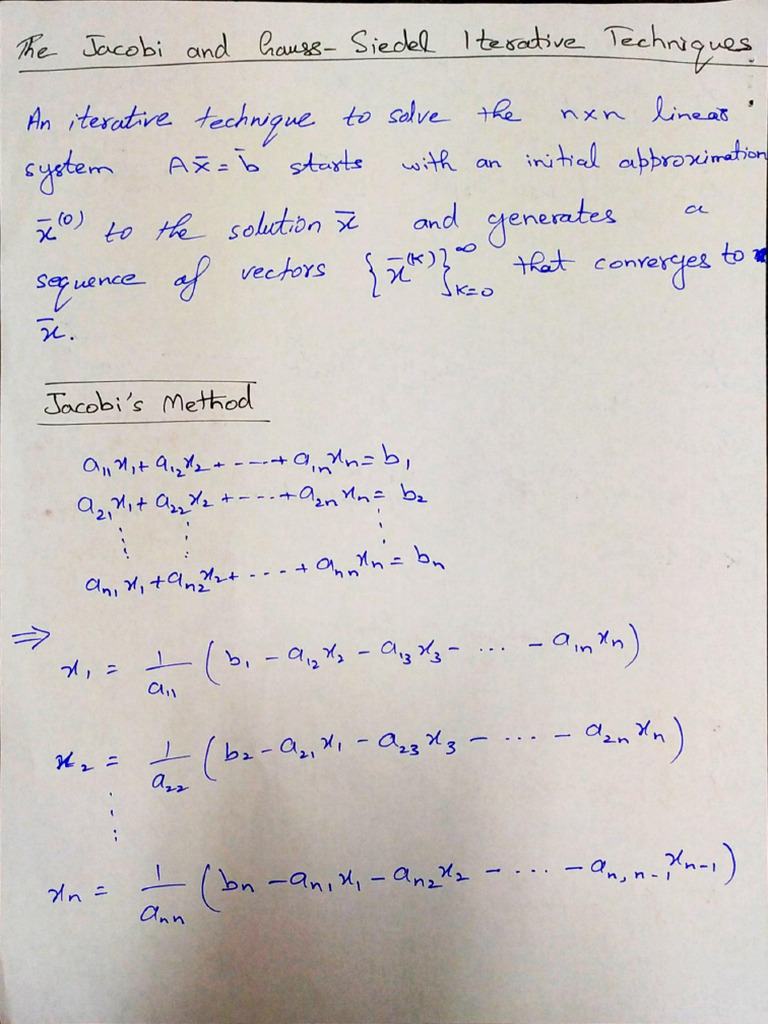 The Jacobi and Gauss-Siedel Iterative Techniques
An iterative technique to solve the n×n linear
system Ax̄ = b̄ starts with an initial approximation
x̄⁽⁰⁾ to the solution x̄ and generates a
sequence of vectors {x̄⁽ᴷ⁾}∞K=0 that converges to
x̄.
Jacobi's Method
a₁₁x₁ + a₁₂x₂ + ----+ a₁ₙxₙ = b₁
a₂₁x₁ + a₂₂x₂ + ----+ a₂ₙxₙ = b₂
⋮ ⋮ ⋮
aₙ₁x₁ + aₙ₂x₂ + ---- + aₙₙxₙ = bₙ
⇒
x₁ = 1/a₁₁ (b₁ - a₁₂x₂ - a₁₃x₃ - ... - a₁ₙxₙ)
x₂ = 1/a₂₂ (b₂ - a₂₁x₁ - a₂₃x₃ - ... - a₂ₙxₙ)
⋮
xₙ = 1/aₙₙ (bₙ - aₙ₁x₁ - aₙ₂x₂ - ... - aₙ,ₙ₋₁xₙ₋₁)